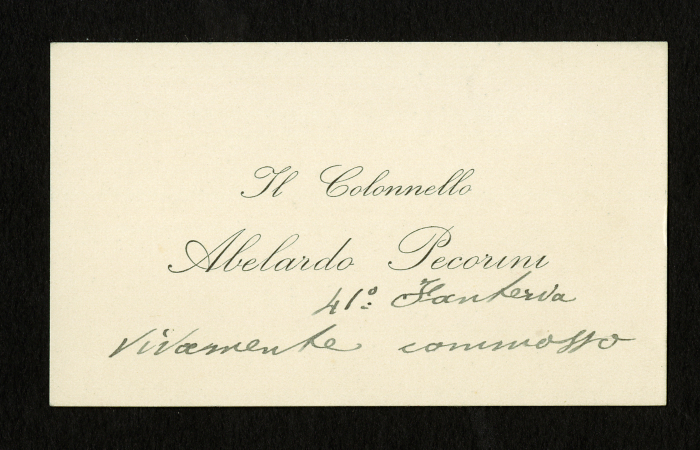 Il Colonnello
Abelardo Pecorini
41º Fanteria
vivamente commosso